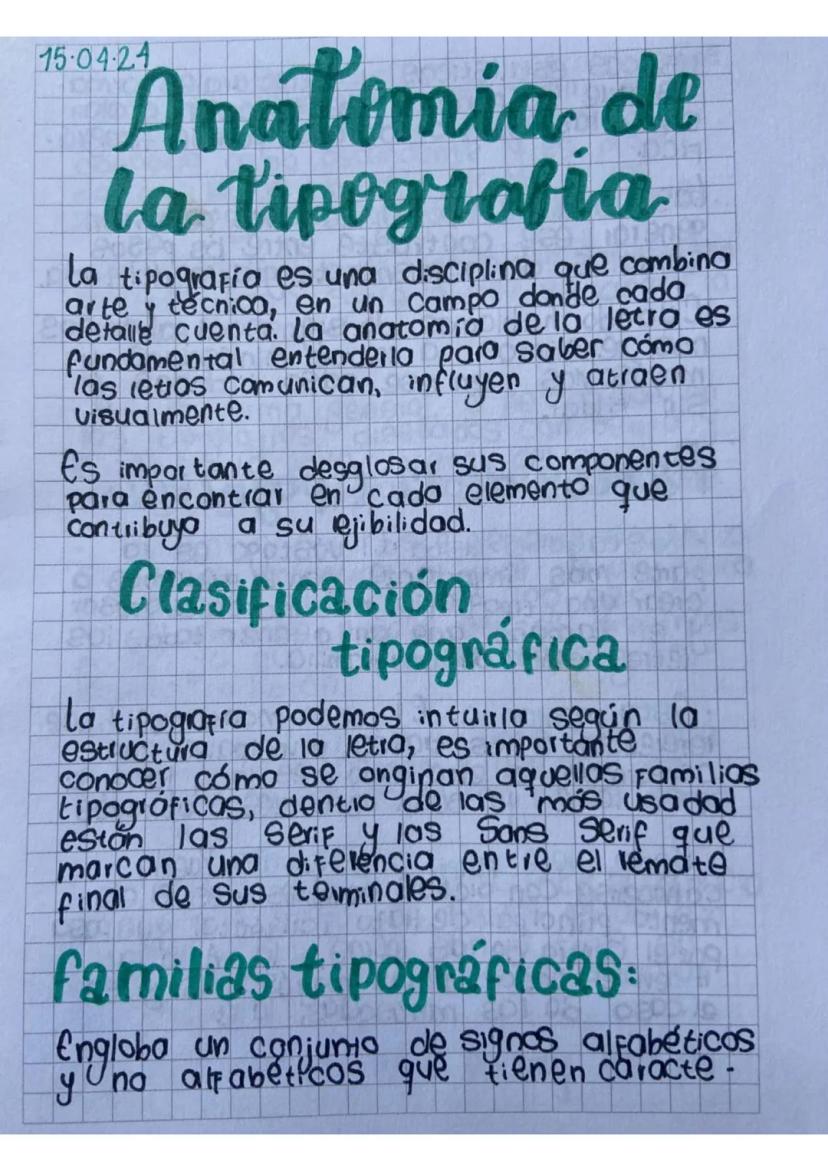 15.04.24
Anatomía de
la tipografía
La tipografía es una disciplina que combina
arte y técnica, en un campo donde cada
detalle cuenta. La anatomía de la letra es
fundamental entenderla para saber cómo
las letras comunican, influyen y atraen
visualmente.
Es importante desglosar sus componentes
para encontrar en cada elemento que
contribuya a su ejibilidad.
Clasificación
tipográfica
La tipografía podemos intuirla según la
estructura de la letra, es importante
conocer cómo se originan aquellas familias
tipográficas, dentro de las más usadad
están las serif y las sans serif que
marcan una diferencia entre el remate
final de sus terminales.
familias tipográficas:
Engloba un conjunto de signos alfabéticos
y no alfabéticos que tienen caracte-